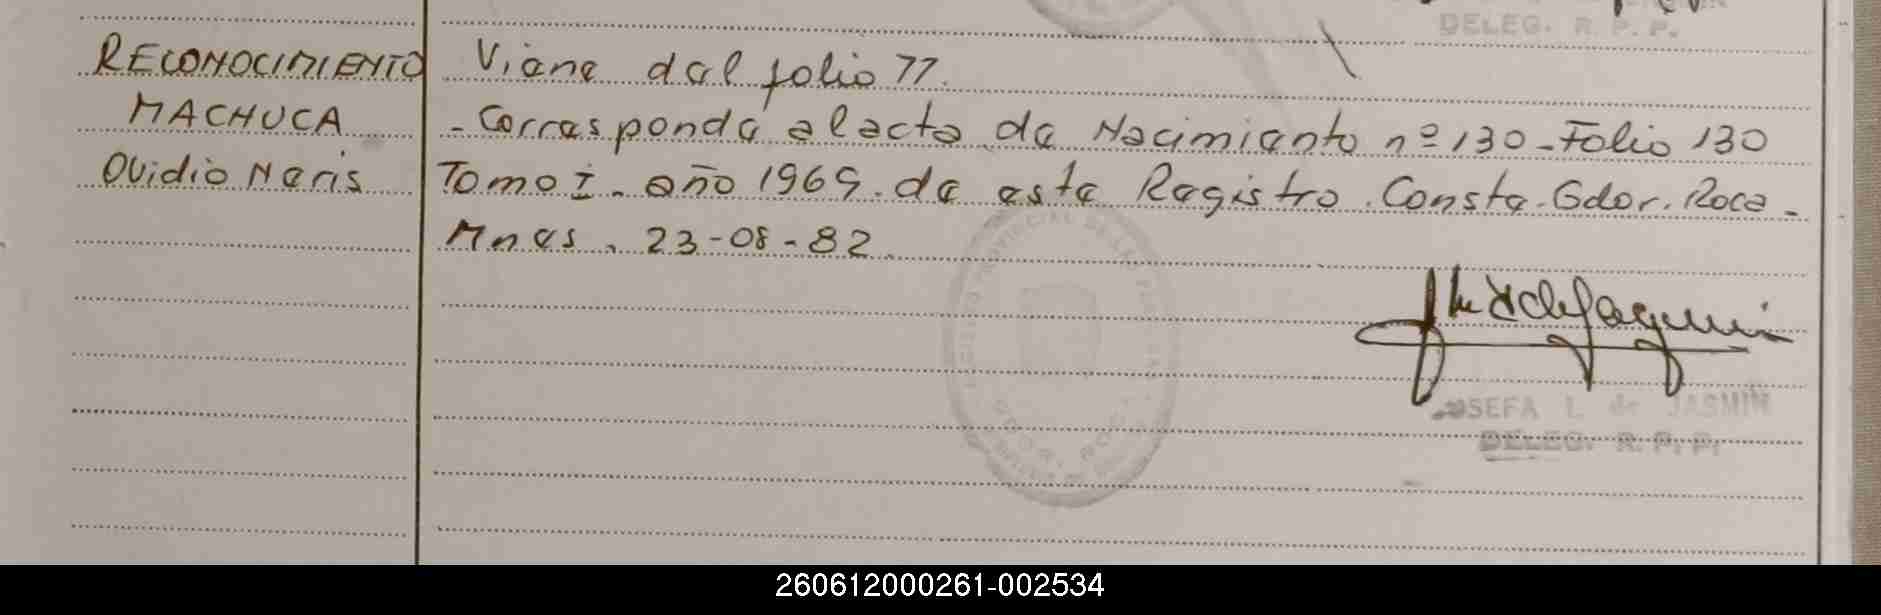 DELEG. R. P. P.
RECONOCIMIENTO Viene del folio 77.
MACHUCA - Corresponde al acta de Nacimiento nº 130 - Folio 130
Ovidio Neris Tomo I - año 1969. de este Registro. Conste. Gdor. Roca -
Mnes. 23-08-82.
JOSEFA L. de JASMIN
DELEG. R. P. P.
260612000261-002534